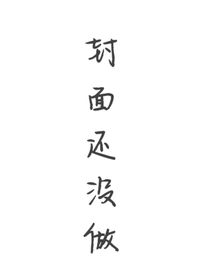 封面还没做